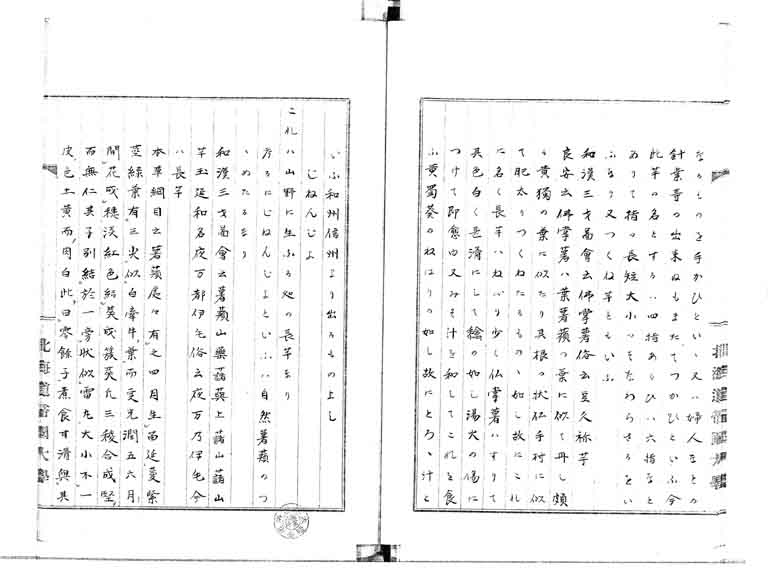 なるものを手かひといへ又ハ婦人などの
針業等の出来ぬもまたてつかひといふ今
此芋の名とするハ四指あるひハ六指など
ありて指の長短大小つそなわらさるをい
ふなり又つくね芋ともいふ
和漢三才啚會云佛掌薯俗云豆久祢芋
良安云佛掌薯ハ葉薯蕷の葉に似て丹し頗
る黄獨の葉に似たり其根の状仏手柑に似
て肥太りつくねたるものゝ如し故にこれ
に名く長芋ハねバり少し仏掌薯ハすりて
其色白く甚滑にして の如し湯火の傷に
つけて即愈ゆ又みそ汁を和してこれを食
ふ黄蜀葵のねはりの如し故にとろゝ汁と
いふ和州信州より出るものよし
じねんじよ
これハ山野に生ふる処の長芋なり
ろにじねんじよといふハ自然薯蕷のつ
ゝめたるなり
和漢三才啚會云薯蕷山藥藷藇土藷山藷山
芋玉延和名夜万都伊毛俗云夜万乃伊毛今
ハ長芋
本草綱目云薯蕷處々有之四月生苗延蔓紫
莖綠葉有三尖似白牽牛葉而更光潤五六月
開花成穗淡紅色結莢成簇莢凢三稜合成堅
而無仁其子別結於一旁状似雷丸大小不一
皮色土黄而肉白此曰零餘子煮食甘滑與其
北海道帝國大學